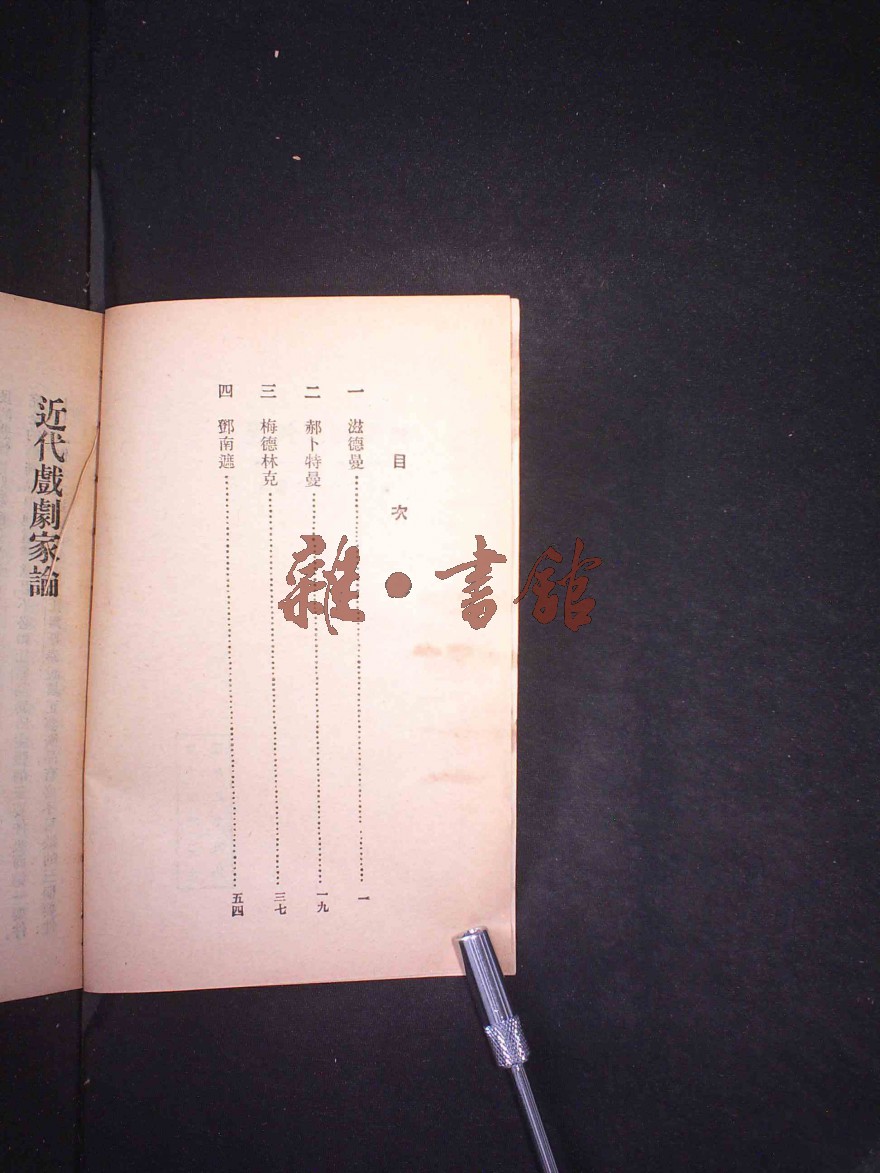 目次
一 滋德曼 一
二 郝卜特曼 一九
三 梅德林克 三七
四 鄧南遮 五四
近代戲劇家論
雜·書館